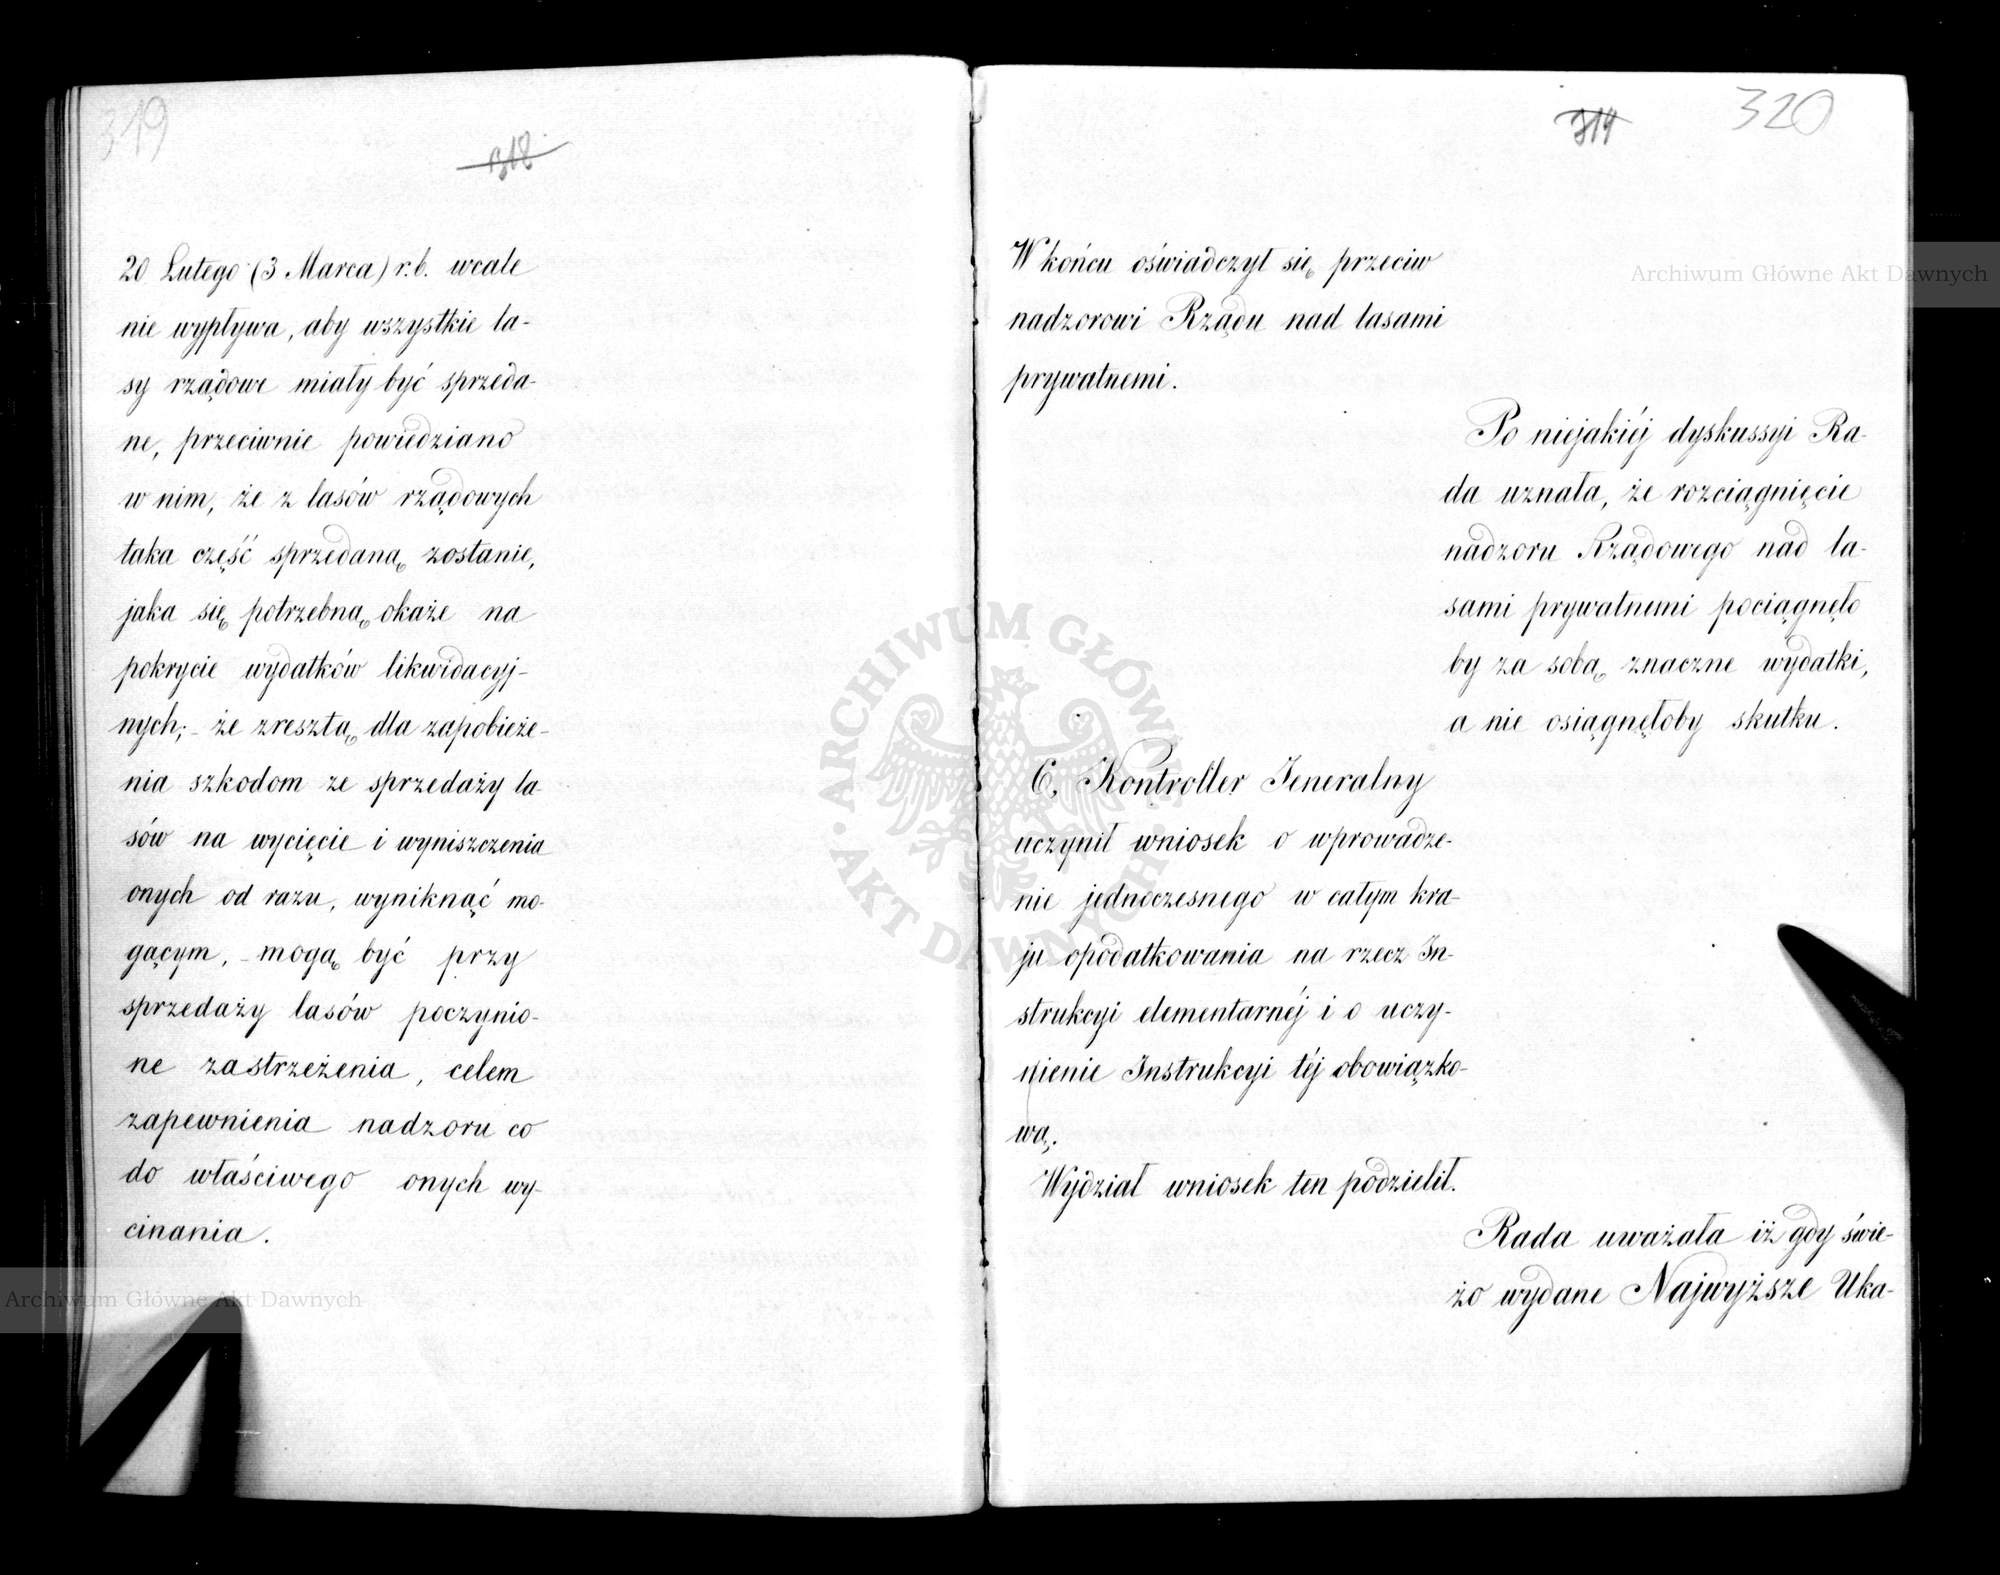 319
318
20 Lutego (3 Marca) r. b. wcale
nie wypływa, aby wszystkie la-
sy rządowe miały być sprzeda-
ne, przeciwnie powiedziano
w nim, że z lasów rządowych
taka część sprzedaną zostanie,
jaka się potrzebną okaże na
pokrycie wydatków likwidacyj-
nych; - że zresztą dla zapobieże-
nia szkodom ze sprzedaży la-
sów na wycięcie i wyniszczenia
onych od razu, wyniknąć mo-
gącym, - mogą być przy
sprzedaży lasów poczynio-
ne zastrzeżenia, celem
zapewnienia nadzoru co
do właściwego onych wy-
cinania.
Archiwum Główne Akt Dawnych
320
319
W końcu oświadczył się przeciw
nadzorowi Rządu nad lasami
prywatnemi.
Po niejakiéj dyskussyi Ra-
da uznała, że rozciągnięcie
nadzoru Rządowego nad la-
sami prywatnemi pociągnęło
by za sobą znaczne wydatki,
a nie osiągnęłoby skutku.
6, Kontroller Jeneralny
uczynił wniosek o wprowadze-
nie jednoczesnego w całym kra-
ju opodatkowania na rzecz In-
strukcyi elementarnéj i o uczy-
nienie Instrukcyi téj obowiązko-
wą.
Wydział wniosek ten podzielił.
Rada uważała iż gdy świe-
żo wydane Najwyższe Uka-
Archiwum Główne Akt Dawnych
ARCHIWUM GŁÓWNE · AKT DAWNYCH ·